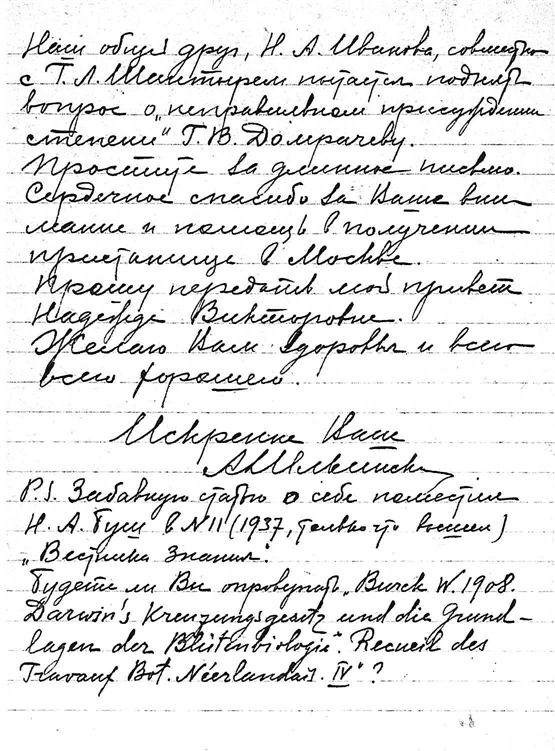 Наш общий друг, Н. А. Иванова, совместно
с Т. Л. пытается поднять
вопрос о „неправильном присуждении
степени“ Г. В. Домрачеву.
Простите за длинное письмо.
Сердечное спасибо за Ваше вни
мание и помощь в получении
пристанища в Москве.
Прошу передать мой привет
Надежде Викторовне.
Желаю Вам здоровья и всего
всего хорошего.
Искренне Ваш
P.S. Забавную статью о себе поместил
Н. А. Буш в N 11 (1937, только что вышел)
„Вестника Знания“.
Будете ли Вы „Burck W. 1908.
Darwin's Kreuzungsgesetz und die Grund-
lagen der Blütenbiologie“. Recueil des
Travaux Bot. Néerlandais. IV“?